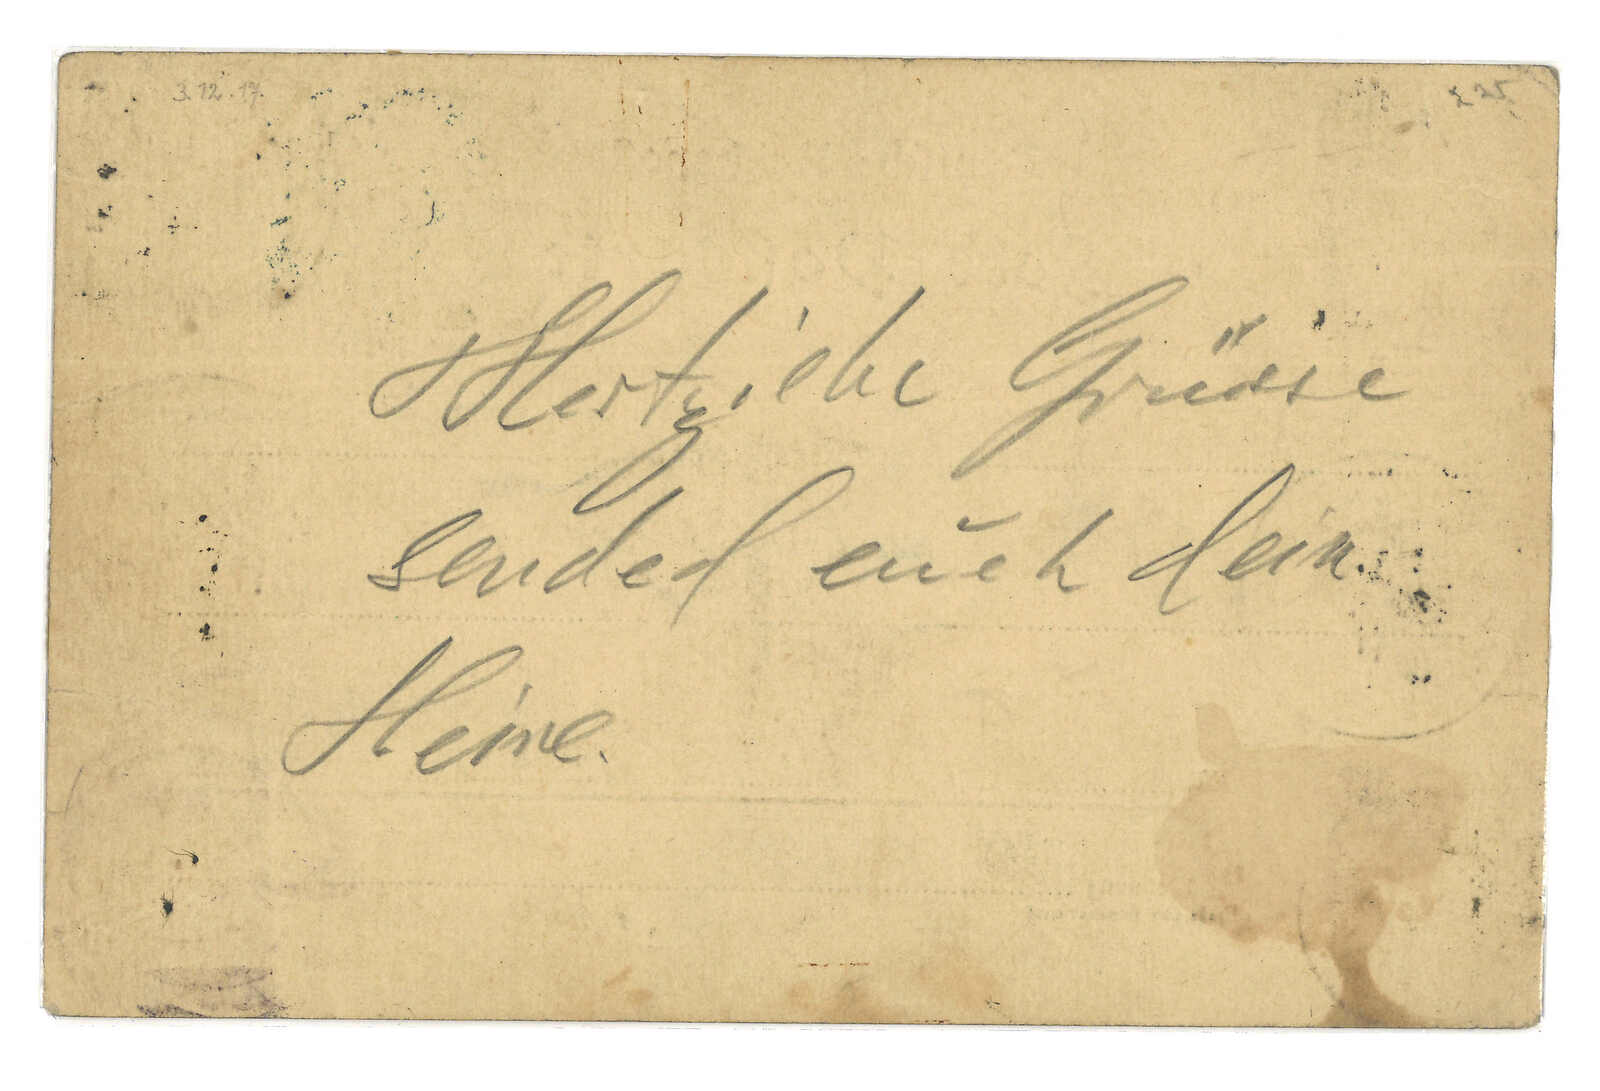 3.12.17.
Hertziche Grüsse
sended euch dein
Heine.